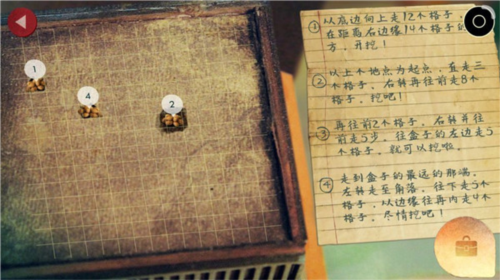 1
4
2
① 以底边向上走12个格子,
在距离右边缘14个格子的
方,开挖!
② 以上个地点为起点,直走三
格子,右转再往前走8个
格子,挖吧!
③ 再往前2个格子,右转并往
前走5步,往盒子的左边走5
个格子,就可以挖啦。
④ 走到盒子的最远的那端,
左转走至角落,往下走5个
格子,以边缘往再内走4个
格子,尽情挖吧!